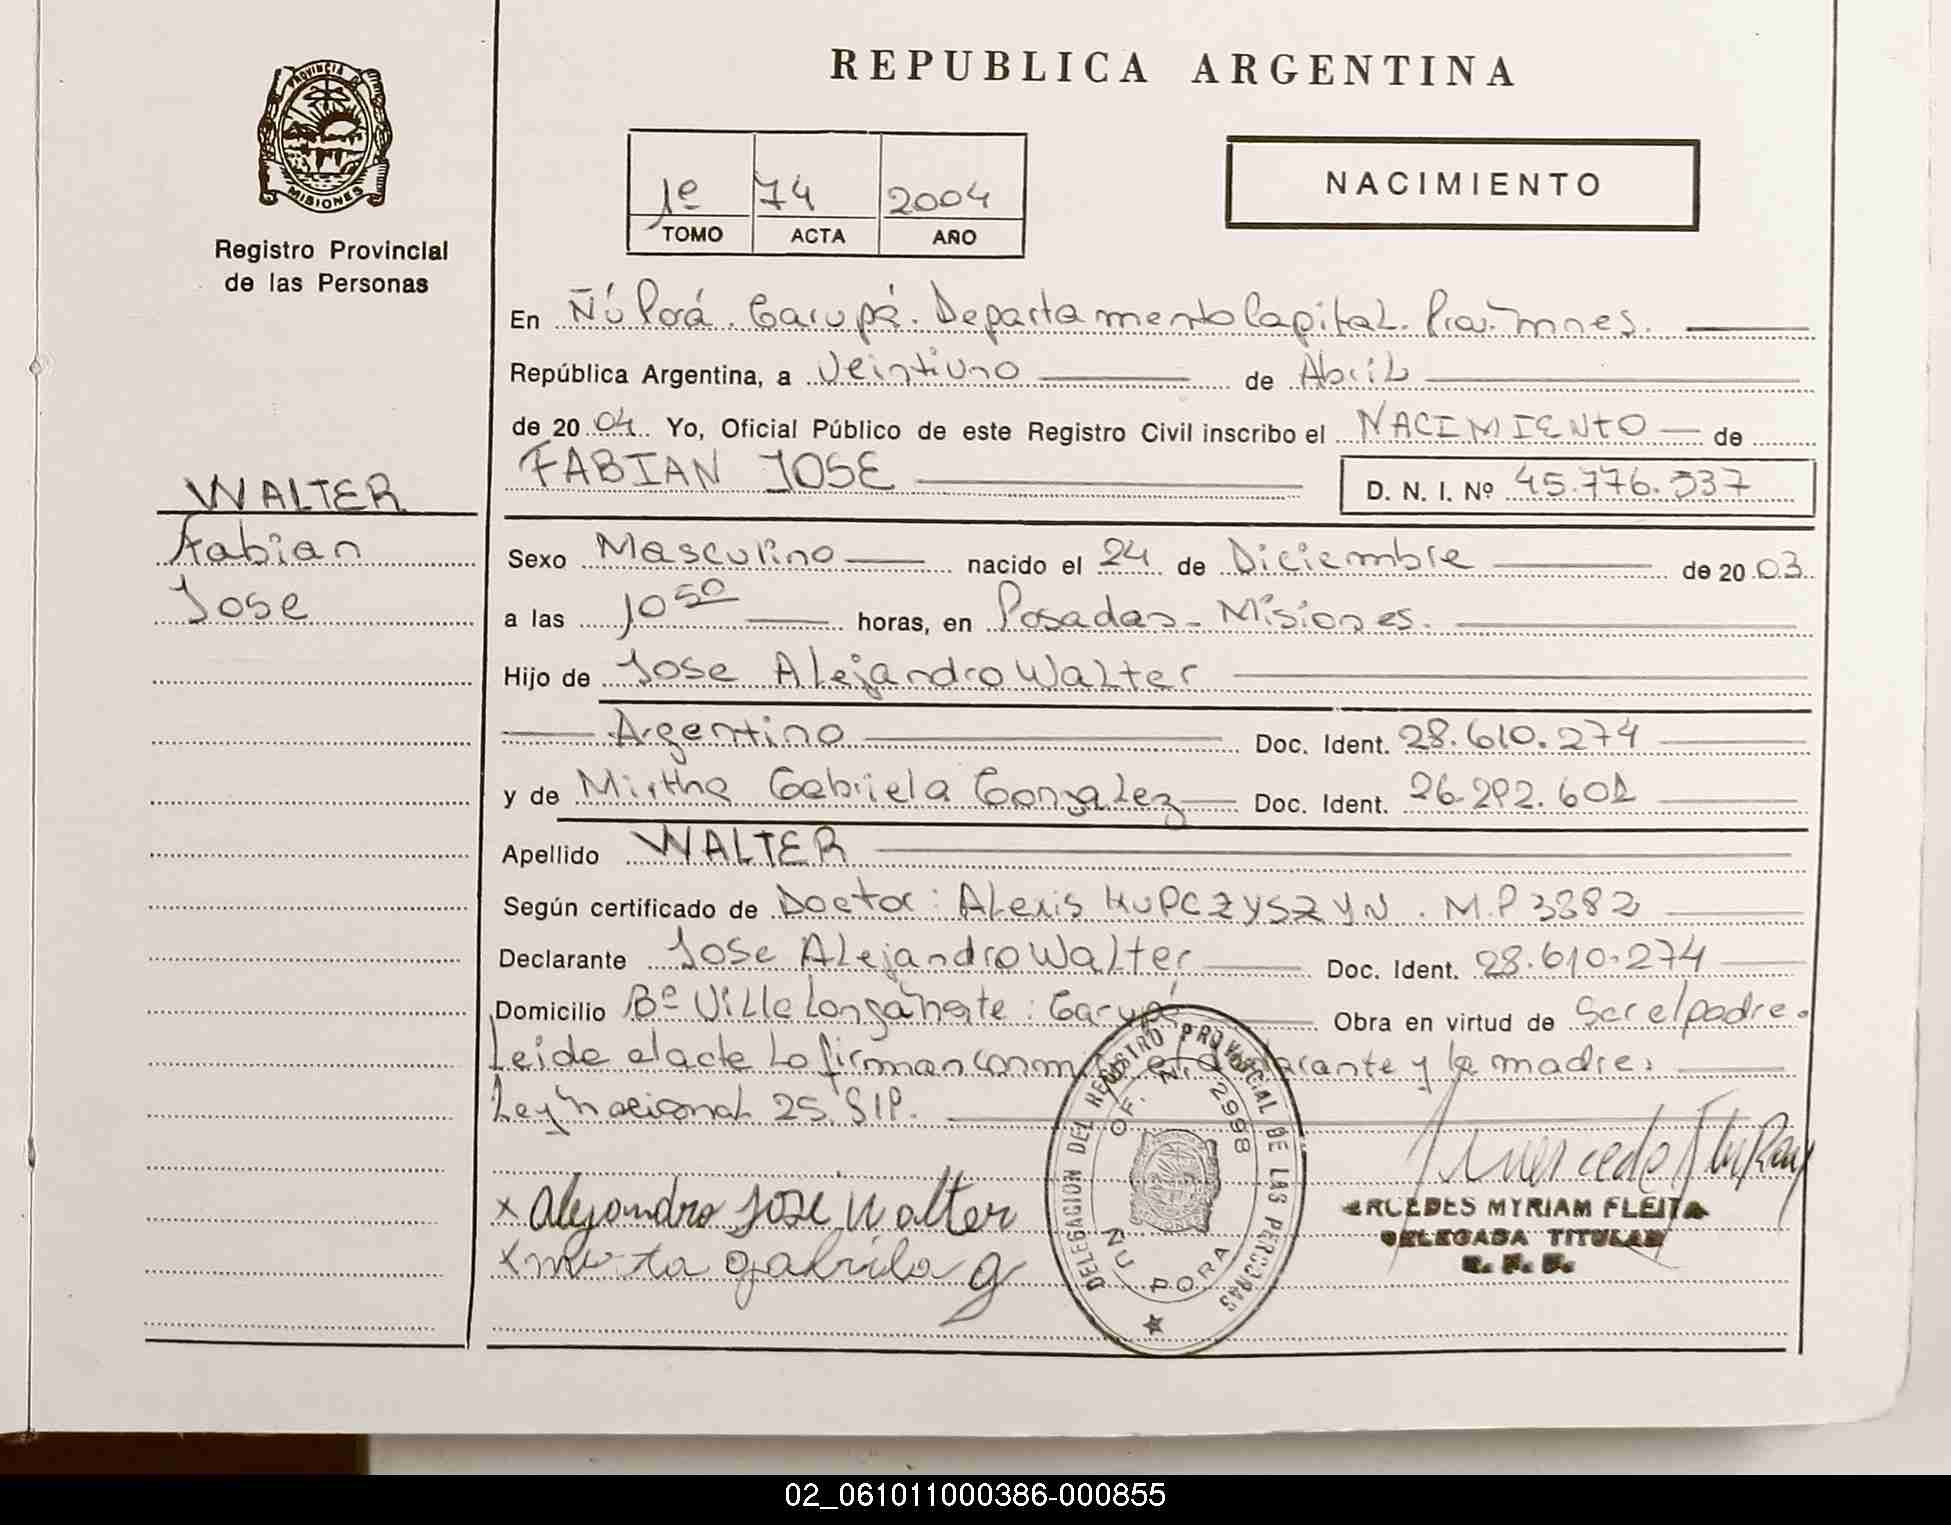 REPUBLICA ARGENTINA
PROVINCIA DE
MISIONES
Registro Provincial
de las Personas
1º 74 2004
TOMO ACTA AÑO
NACIMIENTO
En Ñú Porá. Garupá. Departamento Capital. Pcia. Mnes.
República Argentina, a Veintiuno de Abril
de 2004 Yo, Oficial Público de este Registro Civil inscribo el NACIMIENTO de
FABIAN JOSE D. N. I. Nº 45.776.337
WALTER
Fabian
Jose
Sexo Masculino nacido el 24 de Diciembre de 2003.
a las 10 50 horas, en Posadas - Misiones.
Hijo de Jose Alejandro Walter
Argentino Doc. Ident. 28.610.274
y de Mirtha Gabriela Gonzalez Doc. Ident. 26.292.601
Apellido WALTER
Según certificado de Doctor: Alexis KUPCZYSZYN. M.P 3382
Declarante Jose Alejandro Walter Doc. Ident. 28.610.274
Domicilio Bº Villa Lanzañate: Garupá Obra en virtud de Ser el padre.
Leida el acta Lo firman conmigo el declarante y la madre:
Ley Nacional 25.
x Alejandro Jose Walter
x mirta gabriela g
DELEGACION DEL REGISTRO PROVINCIAL DE LAS PERSONAS
OF. N. 2998
ÑU PORA
ERCEDES MYRIAM FLEITA
DELEGADA TITULAR
R. P. P.
02_061011000386-000855